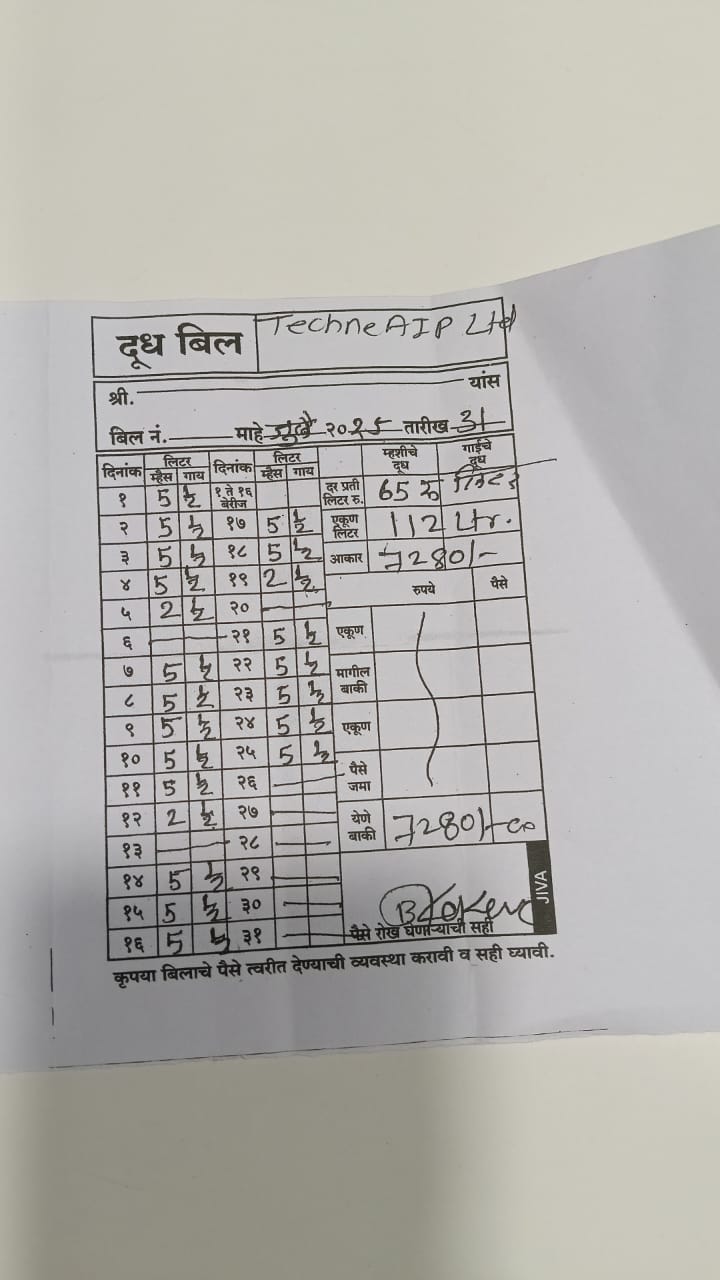 दूध बिल TechneAIP Ltd
श्री. यांस
बिल नं. माहे जुलै २०२५ तारीख 31
दिनांक लिटर दिनांक लिटर म्हशीचे दूध गाईचे दूध
म्हैस गाय म्हैस गाय
१ 5 ½ १ ते १६ बेरीज दर प्रती लिटर रु. 65 रु लिटर
२ 5 ½ १७ 5 ½ एकूण लिटर 112 Ltr.
३ 5 ½ १८ 5 ½ आकार 7280/-
४ 5 ½ १९ 2 ½ रुपये पैसे
५ 2 ½ २०
६ २१ 5 ½ एकूण
७ 5 ½ २२ 5 ½ मागील बाकी
८ 5 ½ २३ 5 ½
९ 5 ½ २४ 5 ½ एकूण
१० 5 ½ २५ 5 ½ पैसे जमा
११ 5 ½ २६
१२ 2 ½ २७ येणे बाकी 7280/-
१३ २८
१४ 5 ½ २९ JIVA
१५ 5 ½ ३०
१६ 5 ½ ३१ पैसे रोख घेणाऱ्याची सही
कृपया बिलाचे पैसे त्वरीत देण्याची व्यवस्था करावी व सही घ्यावी.